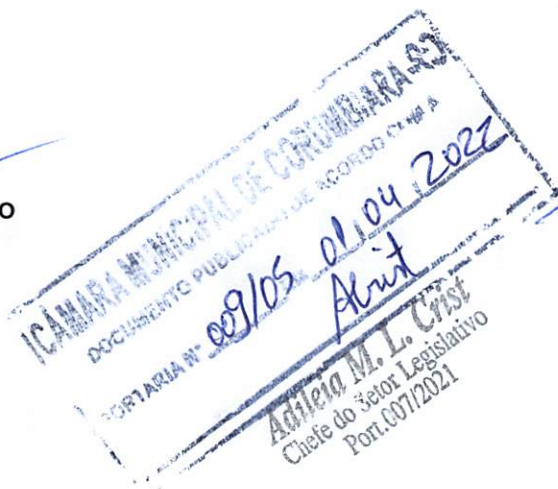 O
CÂMARA MUNICIPAL DE CORUMBIARA-RO
DOCUMENTO PUBLICADO DE ACORDO COM A
PORTARIA Nº 009/05 01/04/2022
Acrist
Adileia M. L. Crist
Chefe do Setor Legislativo
Port.007/2021